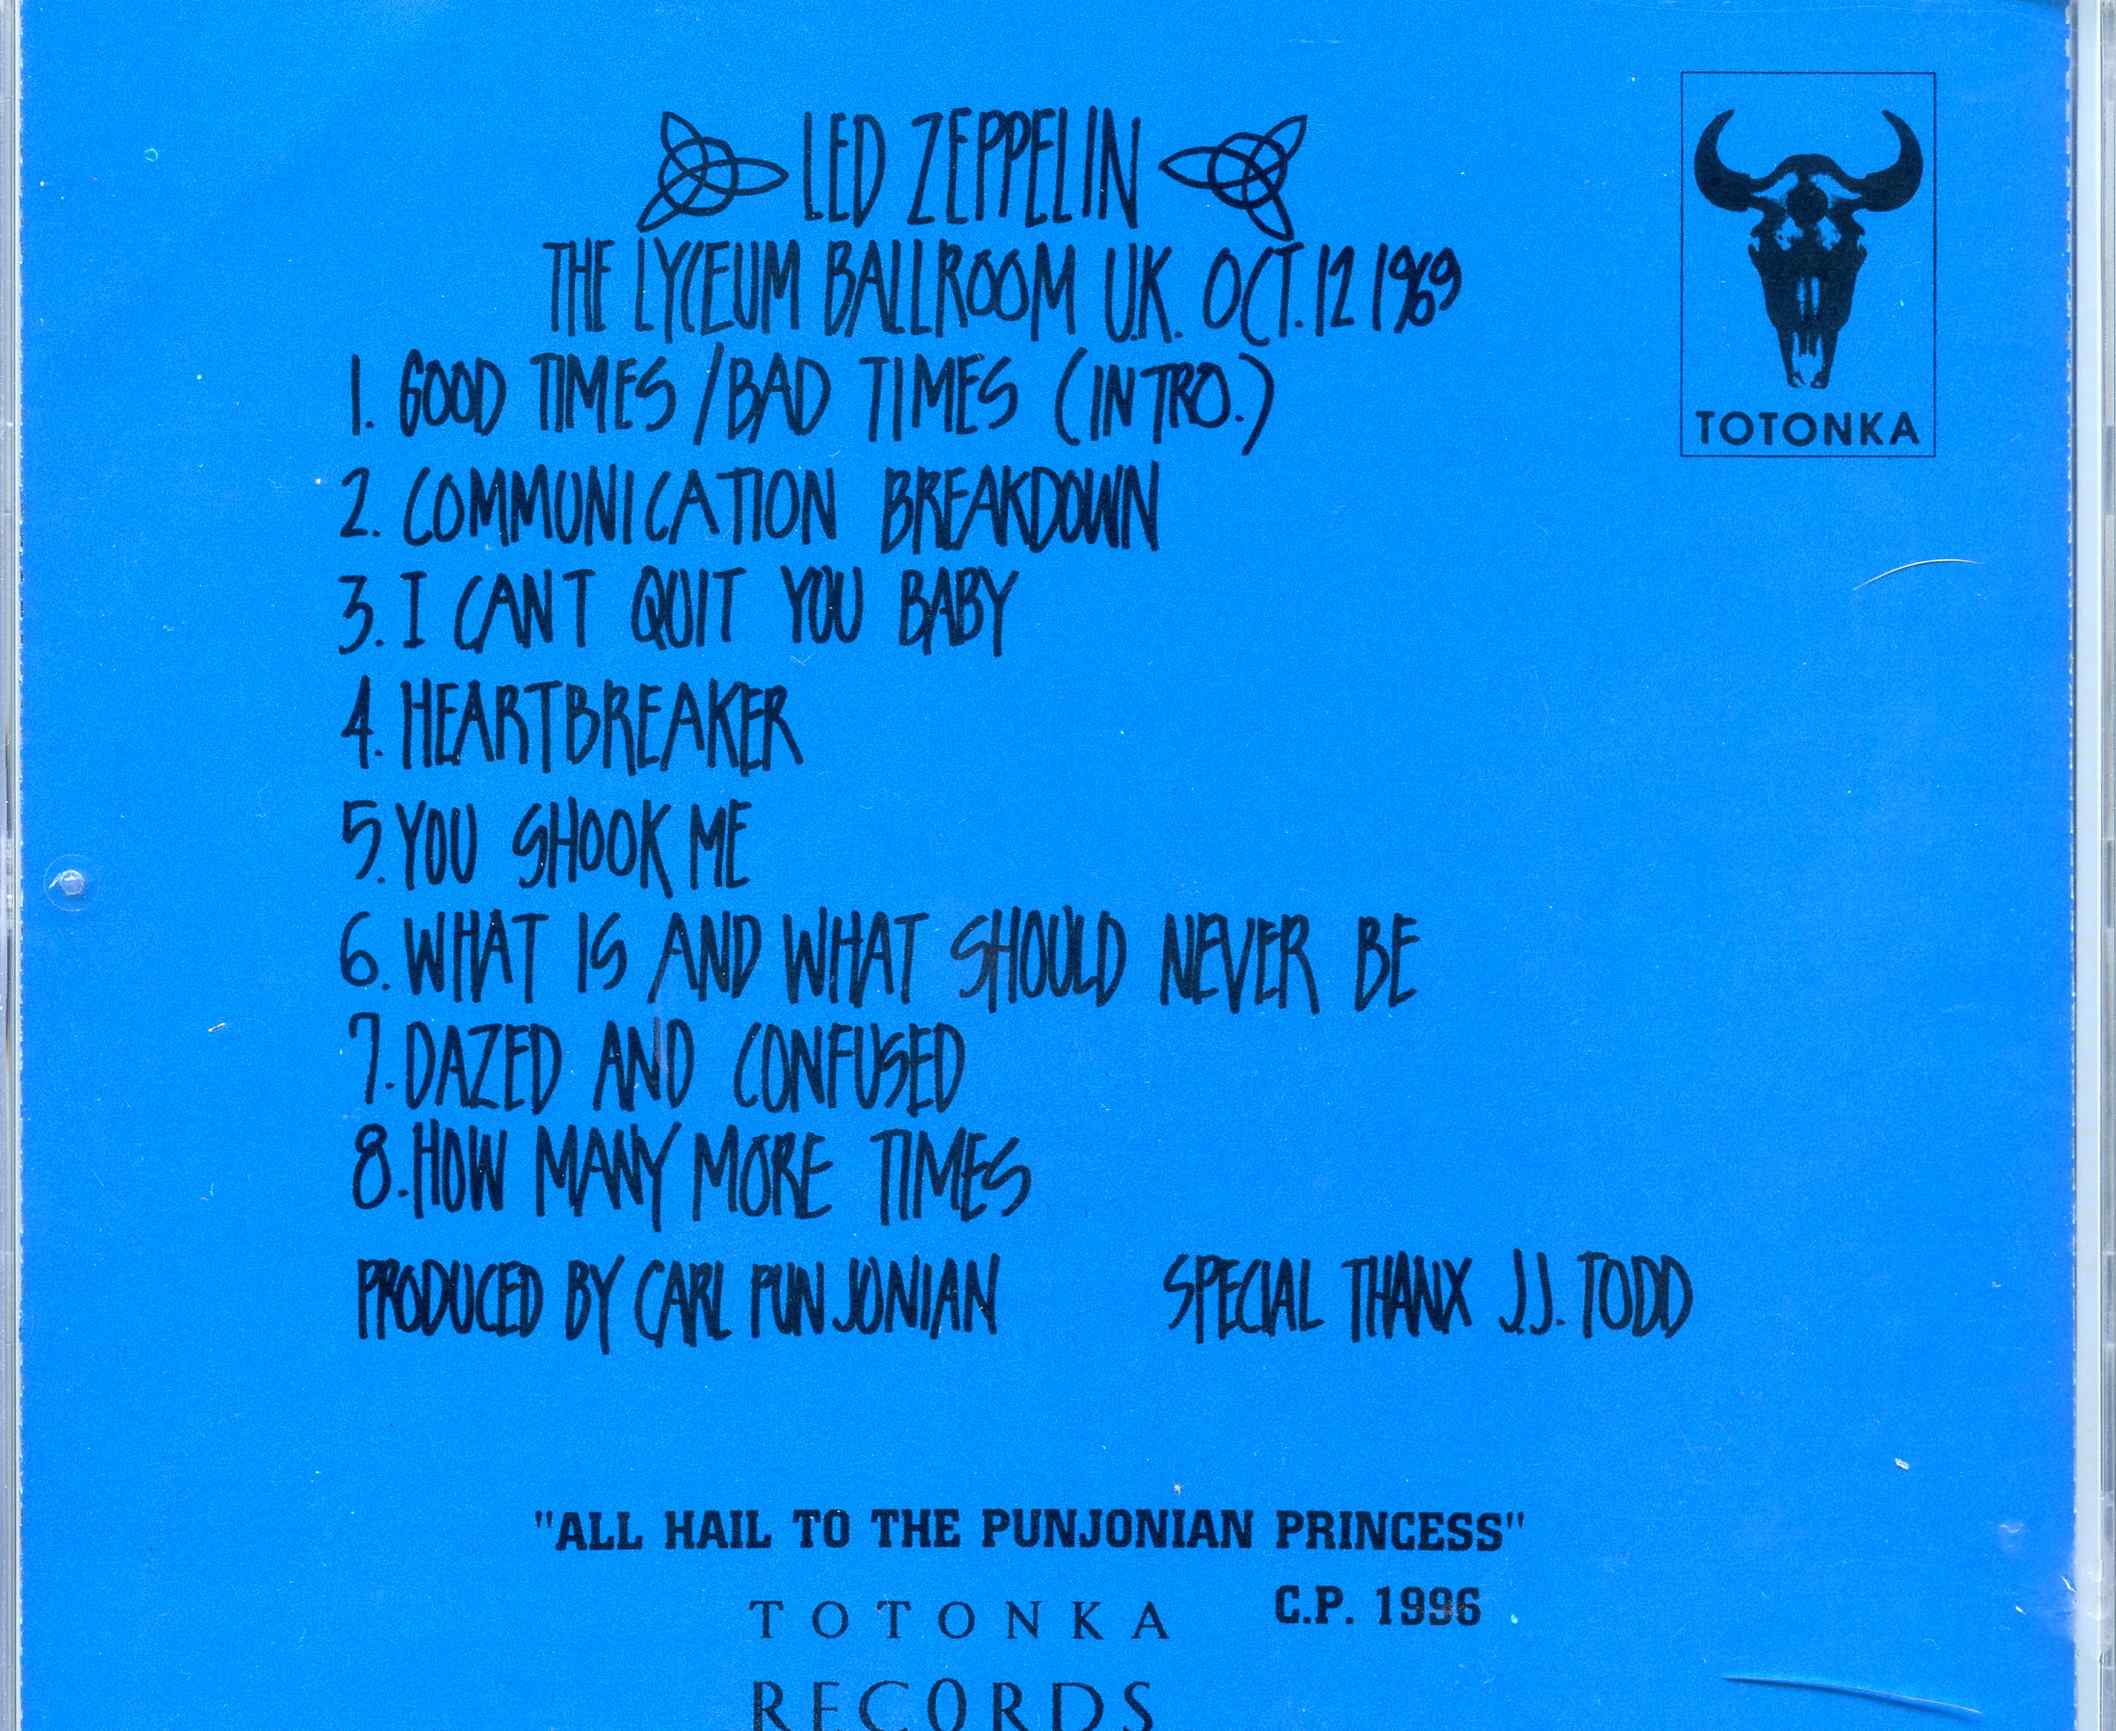 LED ZEPPELIN
THE LYCEUM BALLROOM U.K. OCT. 12 1969
TOTONKA
1. GOOD TIMES / BAD TIMES (INTRO.)
2. COMMUNICATION BREAKDOWN
3. I CANT QUIT YOU BABY
4. HEARTBREAKER
5. YOU SHOOK ME
6. WHAT IS AND WHAT SHOULD NEVER BE
7. DAZED AND CONFUSED
8. HOW MANY MORE TIMES
PRODUCED BY CARL PUNJONIAN SPECIAL THANX J.J. TODD
"ALL HAIL TO THE PUNJONIAN PRINCESS"
C.P. 1996
TOTONKA
RECORDS